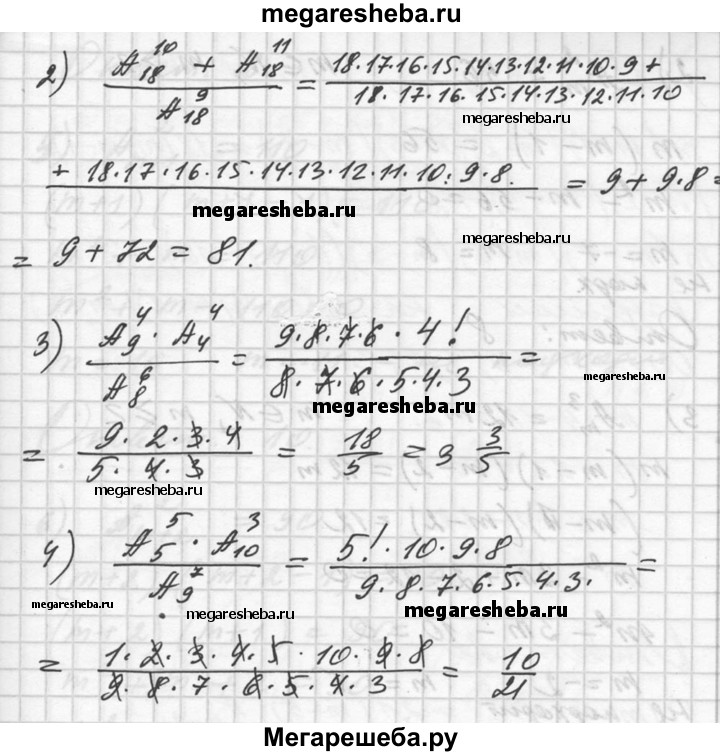 megaresheba.ru
2) (A_18^10 + A_18^11) / A_18^9 = (18·17·16·15·14·13·12·11·10·9 + / 18·17·16·15·14·13·12·11·10
megaresheba.ru
+ 18·17·16·15·14·13·12·11·10·9·8.) = 9 + 9·8 =
megaresheba.ru
megaresheba.ru
= 9 + 72 = 81.
3) (A_9^4 · A_4^4) / A_8^6 = (9·8·7·6·4!) / (8·7·6·5·4·3) =
megaresheba.ru
megaresheba.ru
= (9·2·3·4) / (5·4·3) = 18/5 = 3 3/5
megaresheba.ru
4) (A_5^5 · A_10^3) / A_9^7 = (5!·10·9·8) / (9·8·7·6·5·4·3·) =
megaresheba.ru
megaresheba.ru
megaresheba.ru
= (1·2·3·4·5·10·9·8) / (9·8·7·6·5·4·3) = 10/21
Мегарешеба.ру